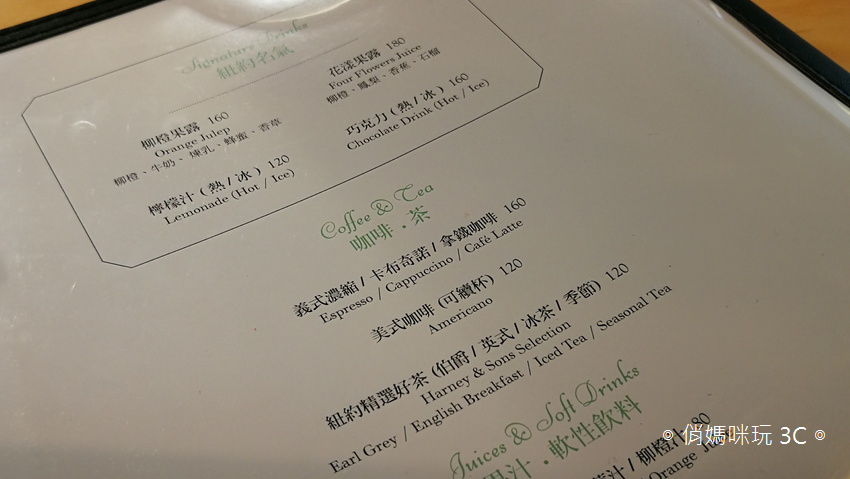 Signature Drinks
紐約名氣
柳橙果露 160
Orange Julep
柳橙、牛奶、煉乳、蜂蜜、香草
檸檬汁 (熱 / 冰) 120
Lemonade (Hot / Ice)
花漾果露 180
Four Flowers Juice
柳橙、鳳梨、香蕉、石榴
巧克力 (熱 / 冰) 160
Chocolate Drink (Hot / Ice)
Coffee & Tea
咖啡 . 茶
義式濃縮 / 卡布奇諾 / 拿鐵咖啡 160
Espresso / Cappuccino / Café Latte
美式咖啡 (可續杯) 120
Americano
紐約精選好茶 (伯爵 / 英式 / 冰茶 / 季節) 120
Harney & Sons Selection
Earl Grey / English Breakfast / Iced Tea / Seasonal Tea
Juices & Soft Drinks
果汁 . 軟性飲料
汁 / 柳橙汁 80
Orange
俏媽咪玩 3C